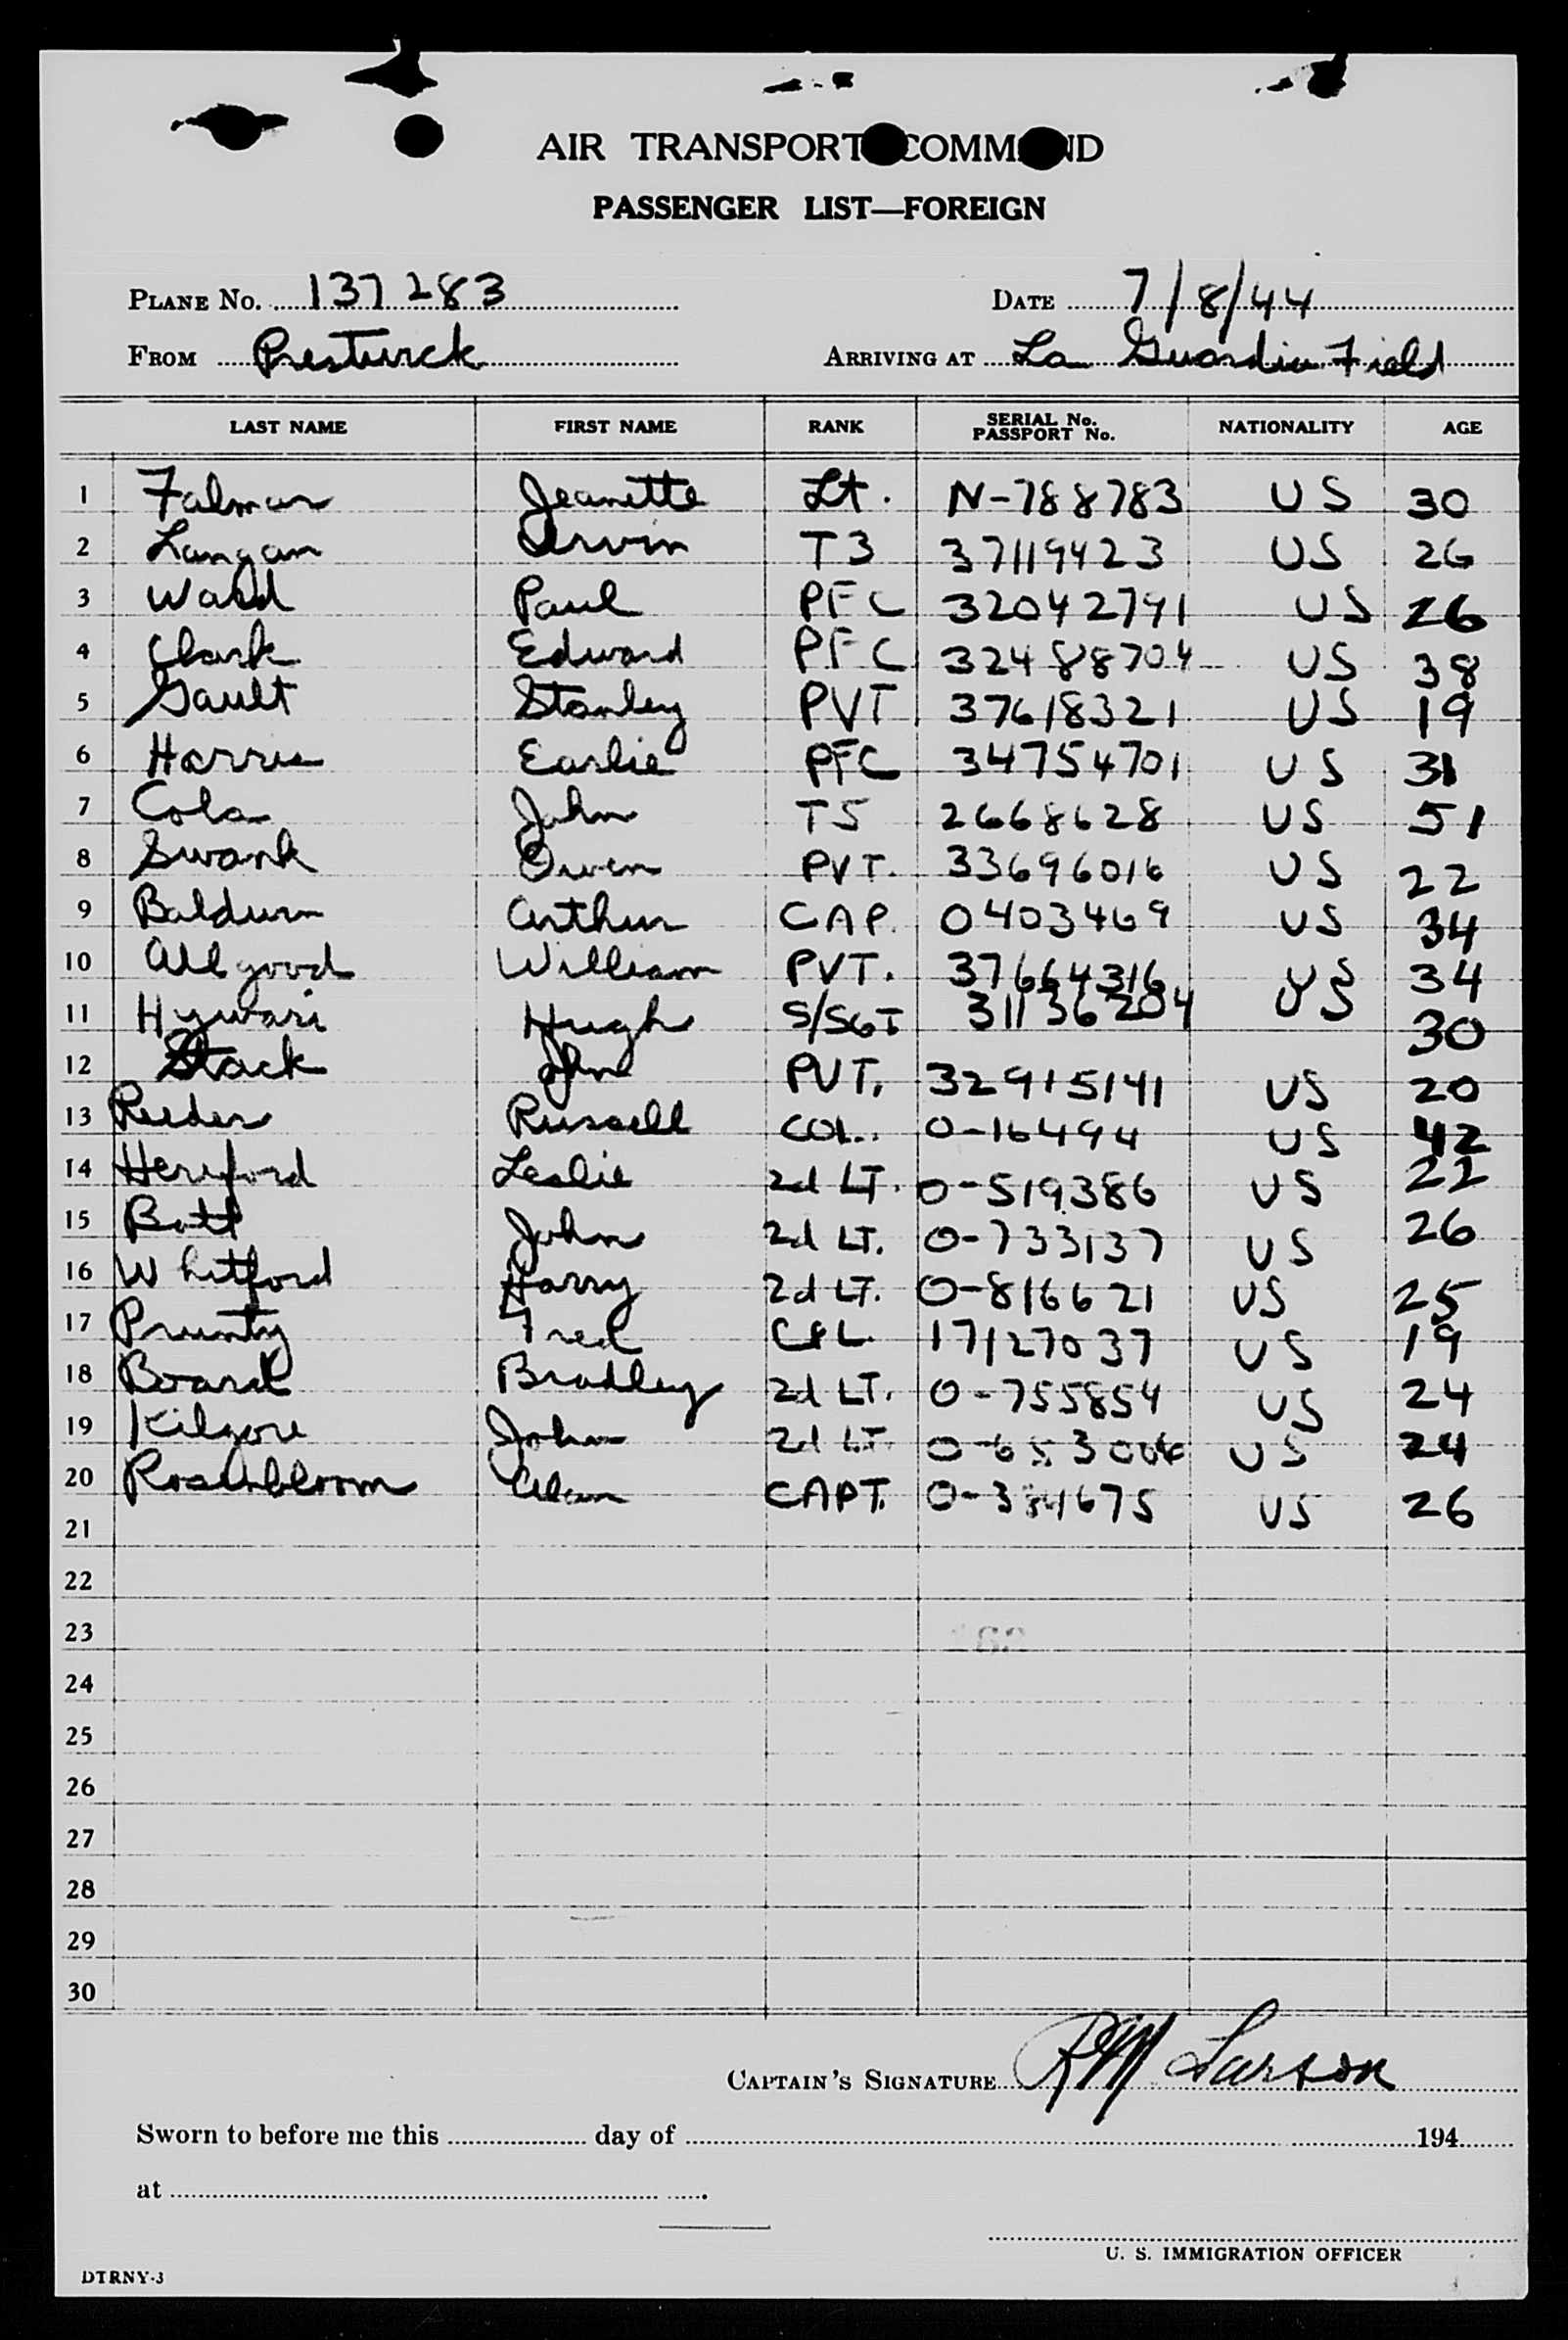 AIR TRANSPORT COMMAND
PASSENGER LIST—FOREIGN
PLANE No. 137283 DATE 7/8/44
FROM Presturck ARRIVING AT La Guardia Field
LAST NAME FIRST NAME RANK SERIAL No. PASSPORT No. NATIONALITY AGE
1 Falmar Jeanette Lt. N-788783 US 30
2 Langan Irvin T3 37119423 US 26
3 Wald Paul PFC 32042791 US 26
4 Clark Edward PFC 32488704 US 38
5 Gault Stanley PVT 37618321 US 19
6 Harris Earlie PFC 34754701 US 31
7 Cola John T5 2668628 US 51
8 Swank Owen PVT. 33696016 US 22
9 Baldwin Arthur CAP. 0403469 US 34
10 Allgood William PVT. 37664316 US 34
11 Hywari Hugh S/SGT 31136204 US 30
12 Stack John PVT. 32915141 US 20
13 Reeder Russell COL. 0-16494 US 42
14 Hereford Leslie 2d LT. 0-519386 US 22
15 Batt John 2d LT. 0-733137 US 26
16 Whitford Harry 2d LT. 0-816621 US 25
17 Prunty Fred CPL. 17127037 US 19
18 Board Bradley 2d LT. 0-755854 US 24
19 Kilgore John 2d LT. US 24
20 Rosenbloom Alan CAPT. 0-384675 US 26
21
22
23
24
25
26
27
28
29
30
CAPTAIN'S SIGNATURE RM Larson
Sworn to before me this day of 194
at .
U. S. IMMIGRATION OFFICER
DTRNY-3